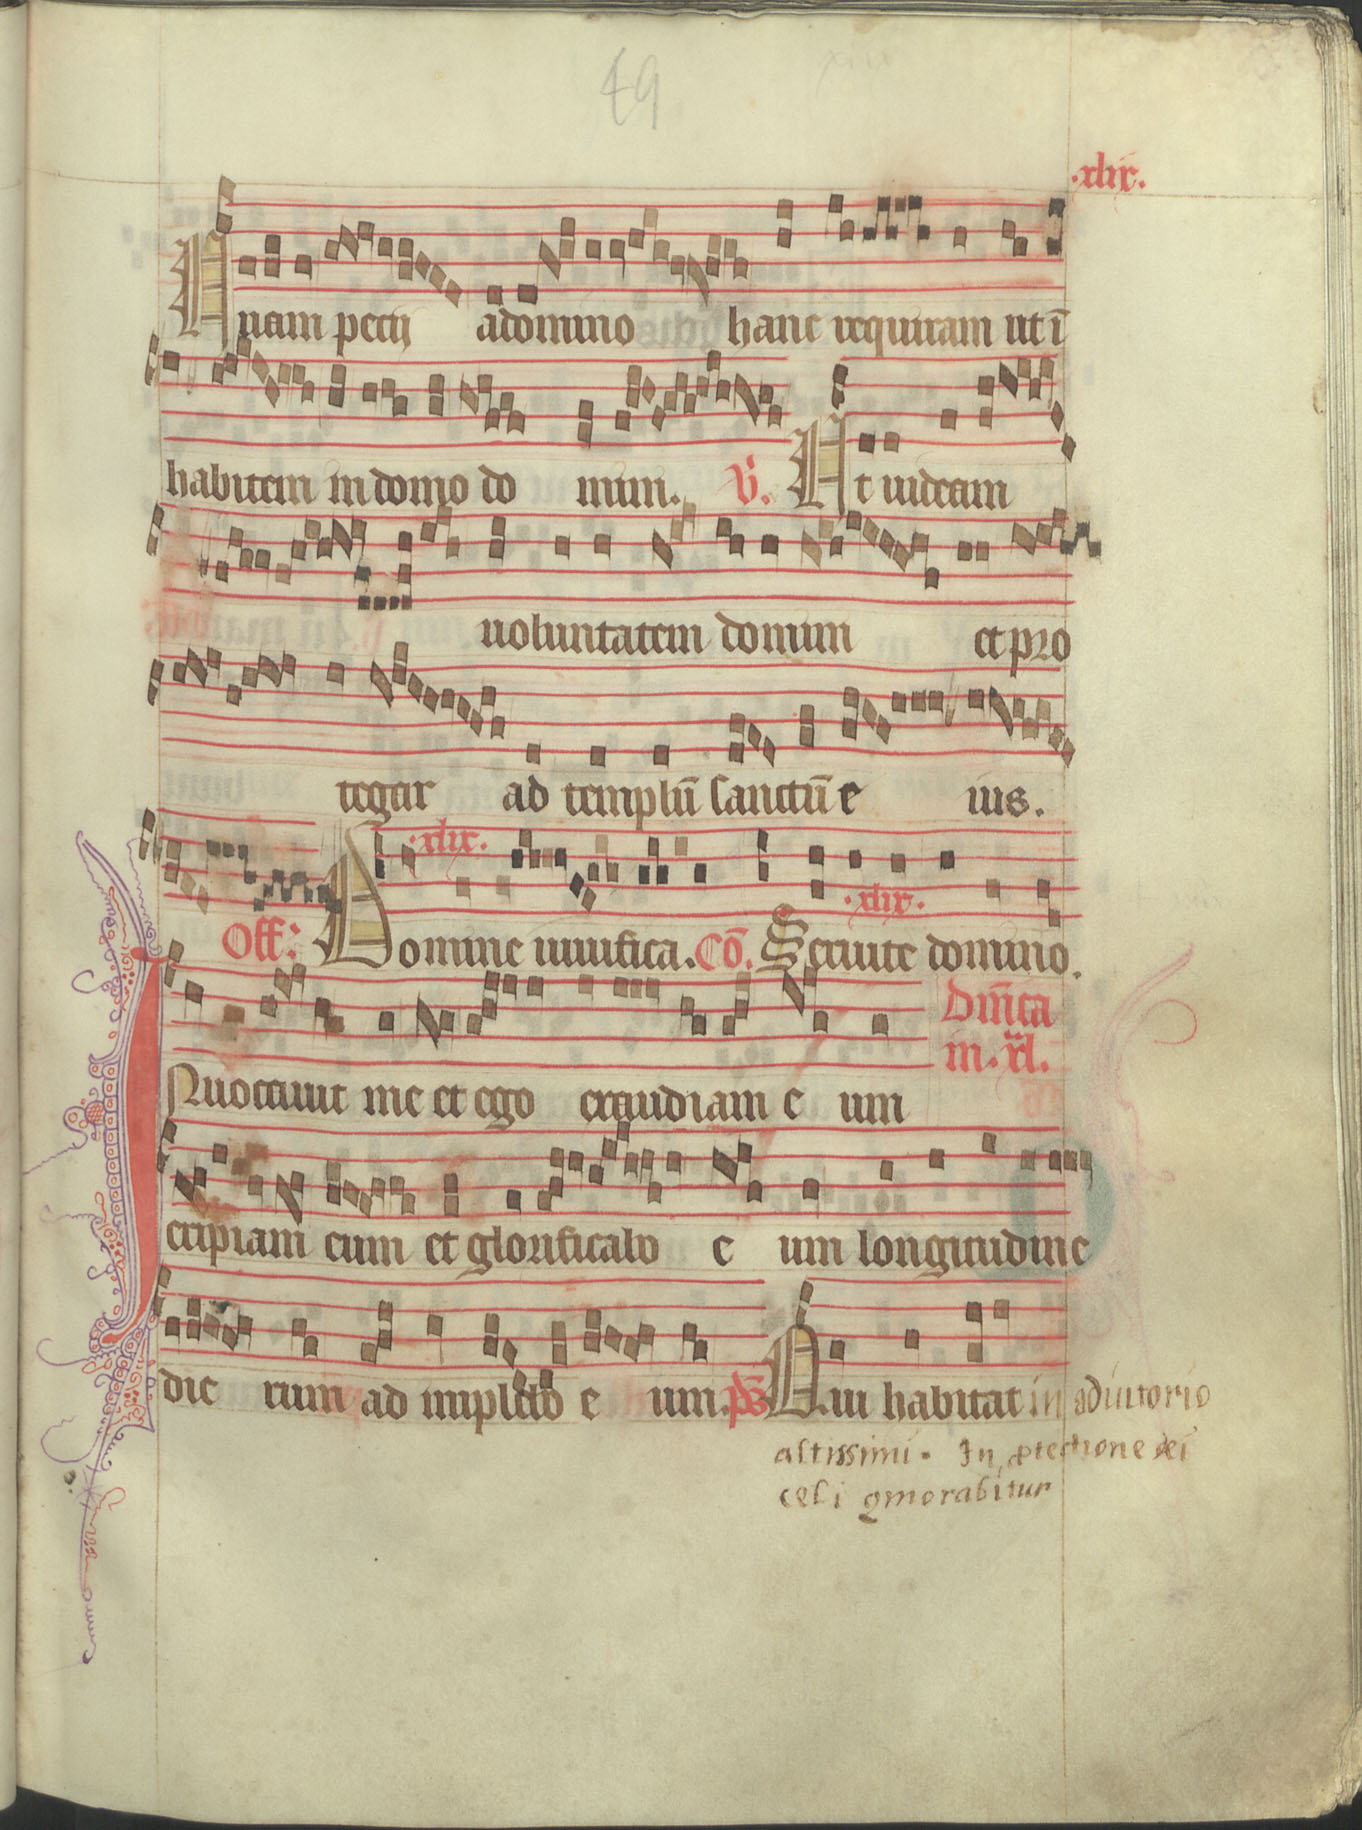 49
.xlix.
Unam pecij adomino hanc requiram ut ī
habitem in domo do mini. V. Ut uideam
uoluntatem domini et pro
tegar ad templū sanctū e ius.
.xlix.
.xlix.
Off: Domine uiuifica. Cō. Seruite domino.
Dn̄ica
in. xl.
Inuocauit me et ego exaudiam e um
eripiam eum et glorificabo e um longitudine
die rum ad implebo e um. ps Qui habitat in adiutorio
altissimi. In ꝓtectione dei
celi ꝯmorabitur